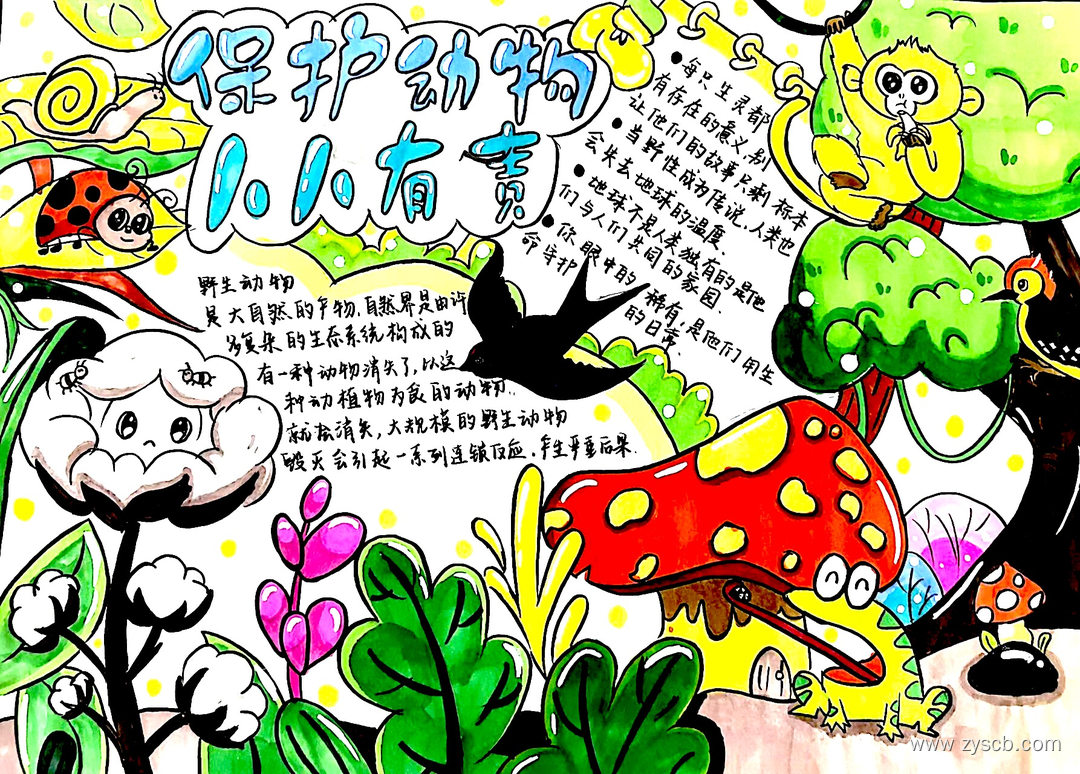 保护动物
人人有责
每只生灵都
有存在的意义,别
让他们的故事只剩标本
当野性成为传说,人类也
会失去地球的温度.
地球不是人类独有的是他
们与人们共同的家园.
你眼中的稀有,是他们用生
命守护的日常.
野生动物
是大自然的产物,自然界是由许
多复杂的生态系统构成的
有一种动物消失了,以这
种动植物为食的动物..
就会消失,大规模的野生动物
毁灭会引起一系列连锁反应.产生严重后果.
www.zyscb.com